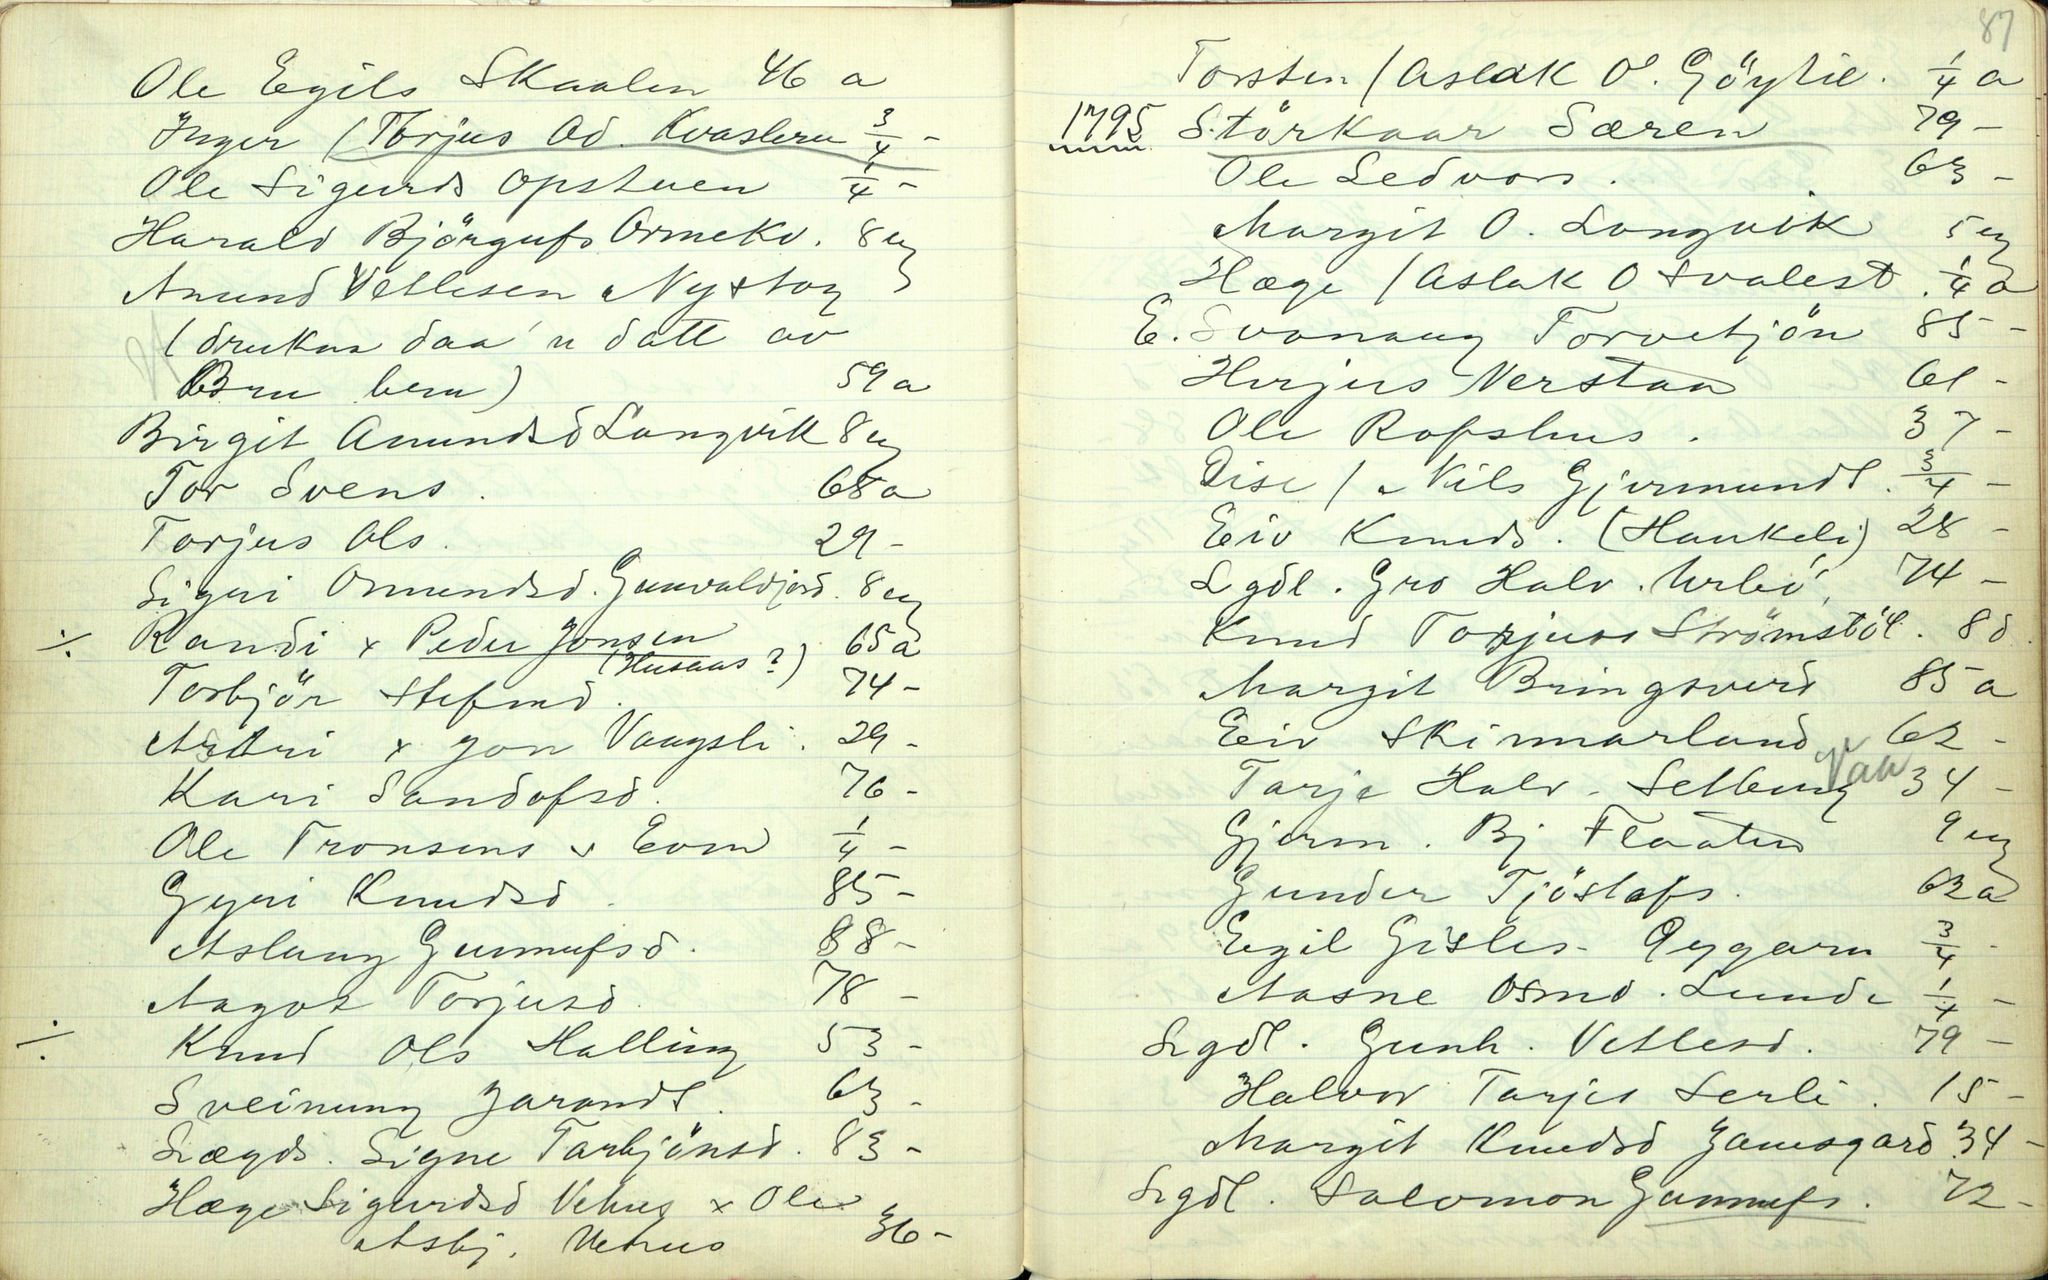 Ole Egils Skaalen 46 a
Inger (Torjus Od. Kvasleru 3/4 -
Ole Sigurds Opstuen 1/4 -
Harald Björgufs Ormekv. 8 ug
Anund Vetlesen Nystog
(drukna daa 'n datt av
Bru beru) 59 a
Birgit Anundsd Langvik 8 ug
Tor Svens. 68 a
Torjus Ols. 29 -
Siguri Omundsd. Gunvaldjord. 8 ug
./. Randi x Peder Jonsen 65 a
(Husaas?)
Torbjör Stefend. 74 -
Astri x Jon Vaagsli. 29 -
Kari Sandofsd. 76 -
Ole Tronsens s Even 1/4 -
Gyri Knudsd. 85 -
Aslaug Gunnufsd. 88 -
Aagot Torjusd. 78 -
./. Knud Ols Halling 53 -
Sveinung Jarandl. 63 -
Lægds. Signe Tarbjönsd. 83 -
Hæge Sigurdsd Vehus x Ole
Asbj. Vehus 36 -
87
Torsten / Aslak O. Göytil. 1/4 a
1795 Störkaar Særen 79 -
Ole Ledvors. 63 -
Margit O. Langvik 5 ug
Hæge / Aslak O Svalest. 1/4 a
E. Svanaug Torvetjön 85 -
Herjus Verstaa 61 -
Ole Rofshus. 37 -
Dise / Nils Gjermundl. 3/4 -
Eiv Knuds. (Haukeli) 28 -
Lgdl. Gro Halv. Urbö, 74 -
Knud Torjuss Strömstöl. 80
Margit Bringsverd 85 a
Eiv Skinnarland 62 -
Tarje Halv. Selberg Vaa 34 -
Gjerm. Bj Flaaten 9 ug
Gunder Tjöstofs. 62 a
Egil Gisles - Øygarn 3/4 -
Aasne Osmd. Lunde 1/4 -
Lgdl. Gunh. Vetlesd. 79 -
Halvor Tarjes Serli. 15 -
Margit Knudsd Jamsgard 34 -
Lgdl. Salomon Gunnufs. 72 -